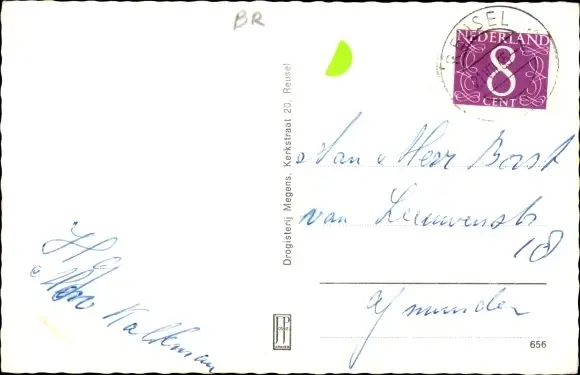 BR
REUSEL
NEDERLAND
8
CENT
Drogisterij Megens, Kerkstraat 20, Reusel
Aan Heer Bost
van Leeuwenstr
18
IJmuiden
Kalkman
JP
656